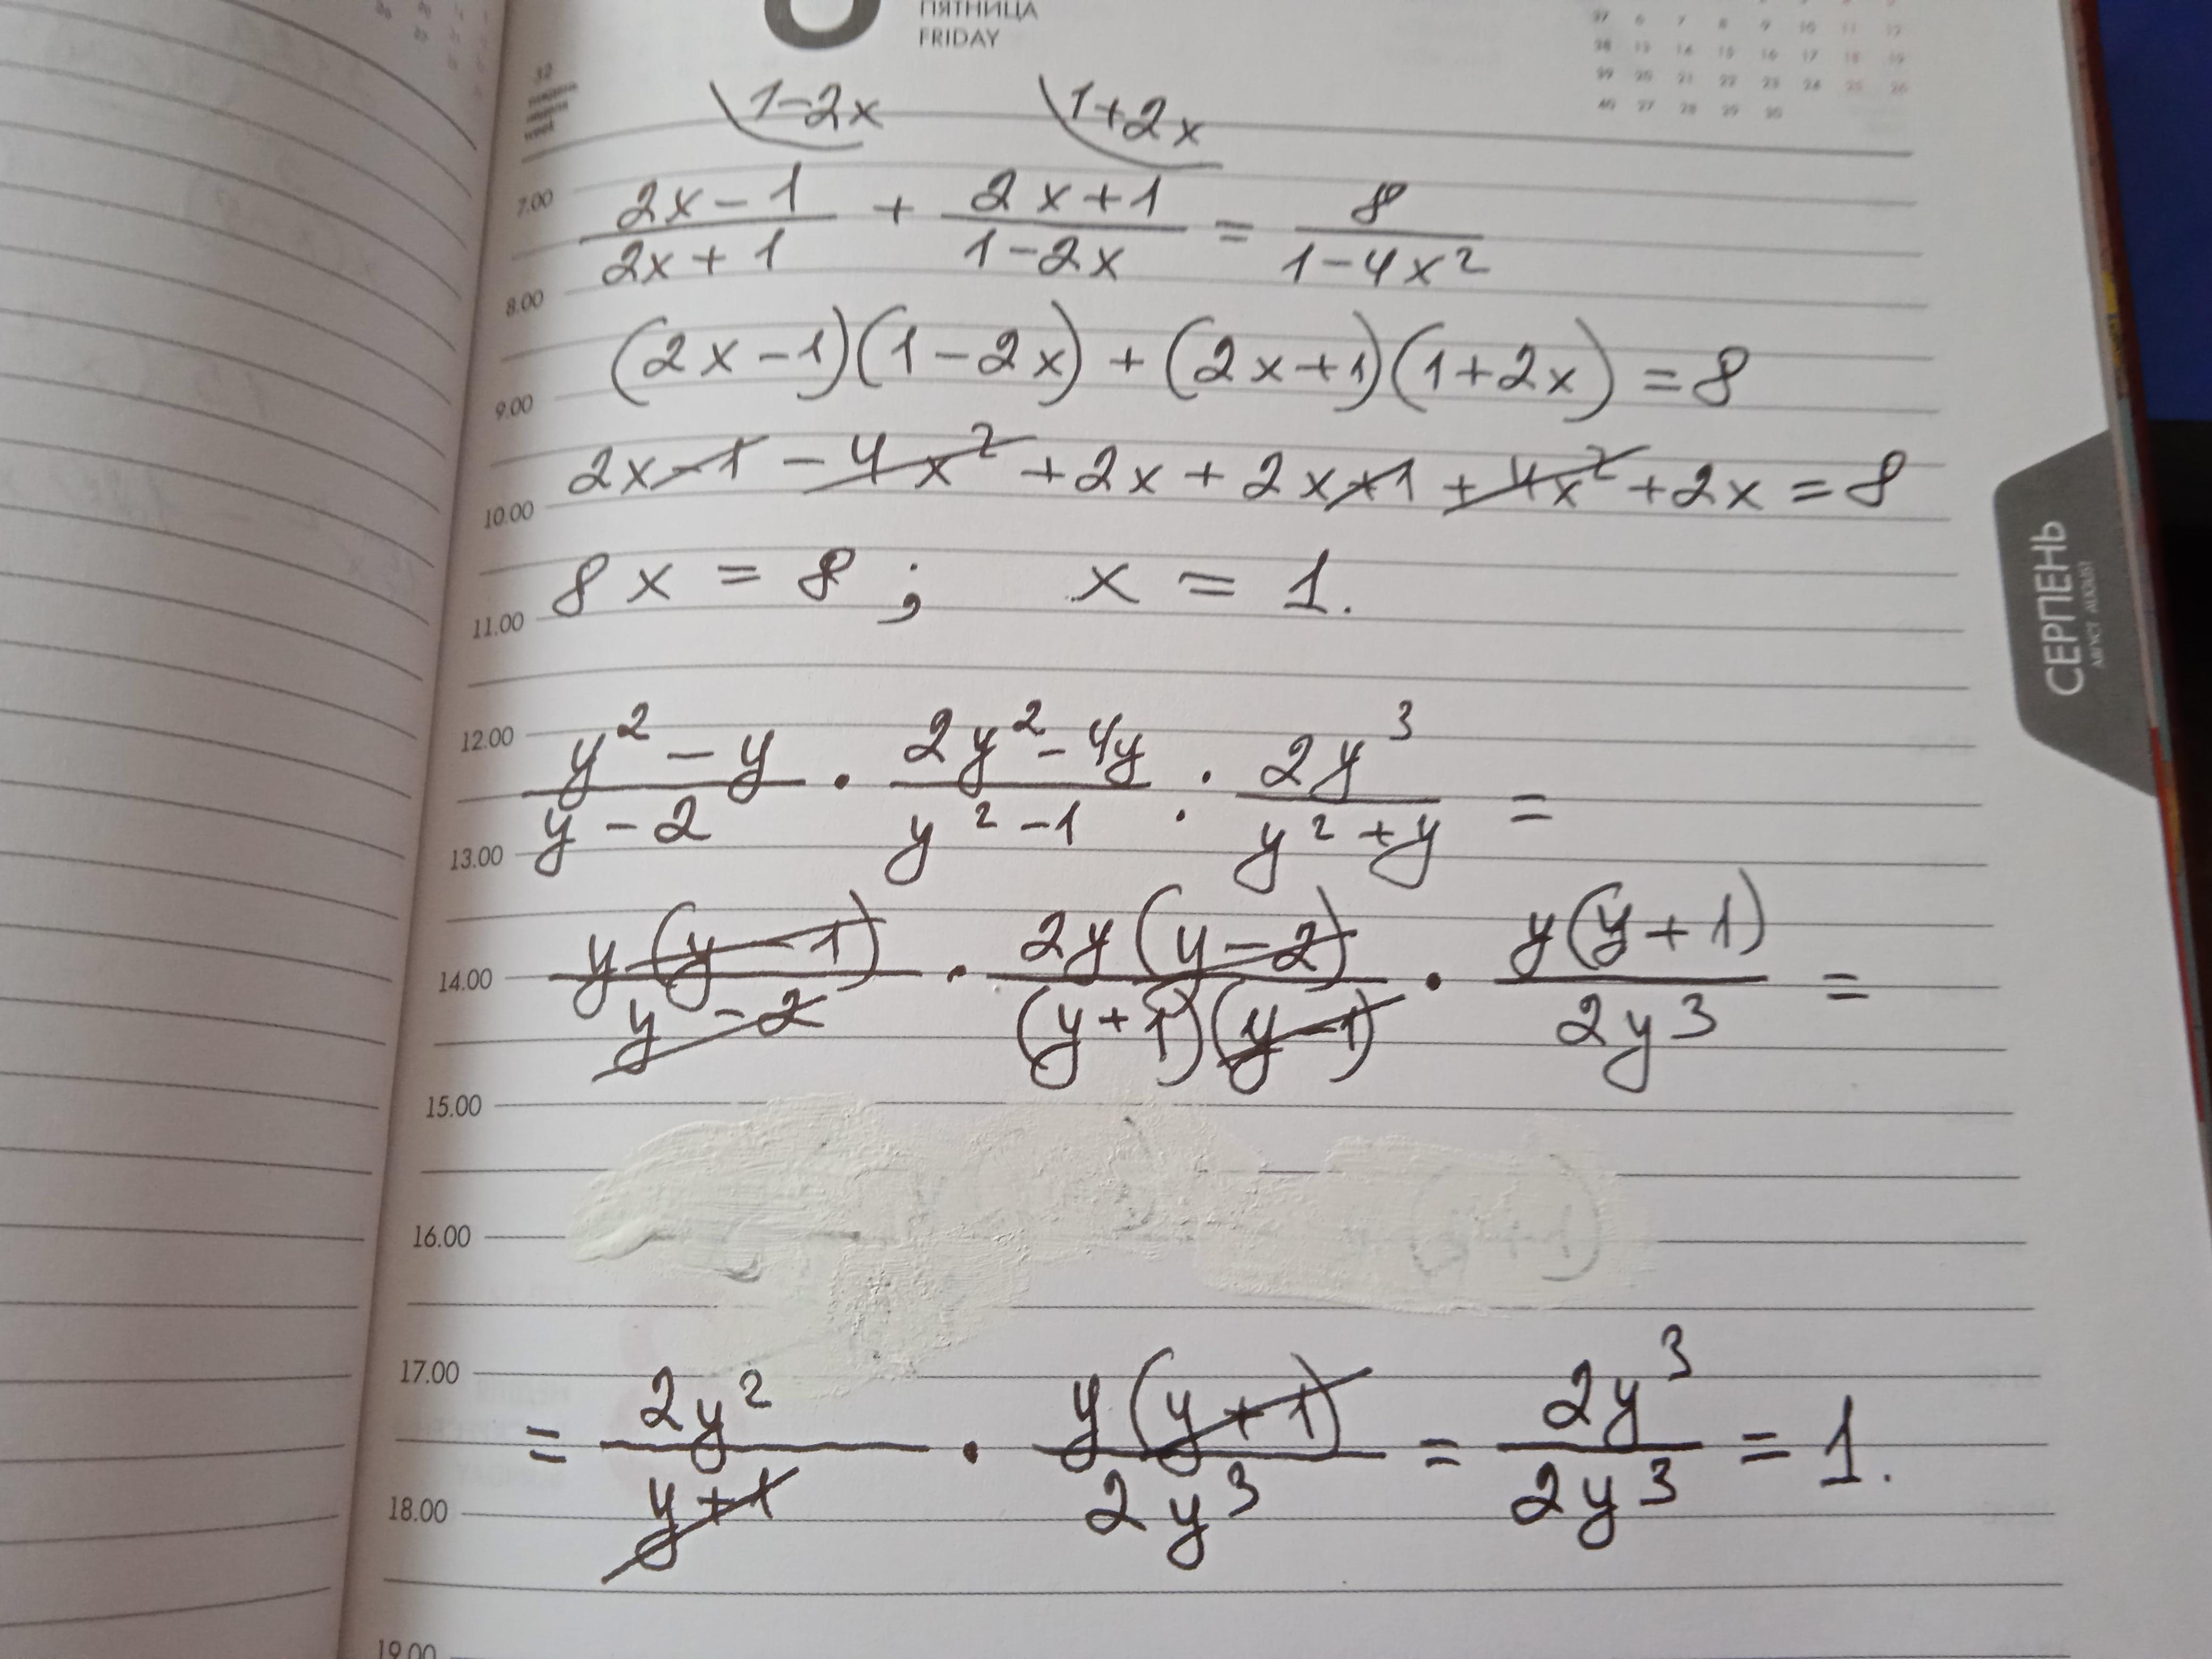 ПЯТНИЦА
FRIDAY
32
37 6 7 8 9 10 11 12
38 13 14 15 16 17 18 19
39 20 21 22 23 24 25 26
40 27 28 29 30
1-2x 1+2x
7.00 (2x-1)/(2x+1) + (2x+1)/(1-2x) = 8/(1-4x²)
8.00
(2x-1)(1-2x) + (2x+1)(1+2x) = 8
9.00
2x-1 - 4x² + 2x + 2x+1 + 4x² + 2x = 8
10.00
8x = 8 ; x = 1.
11.00
12.00
(y²-y)/(y-2) · (2y²-4y)/(y²-1) : 2y³/(y²+y) =
13.00
14.00 y(y-1)/(y-2) · 2y(y-2)/((y+1)(y-1)) · y(y+1)/(2y³) =
15.00
16.00
17.00
= 2y²/(y+1) · y(y+1)/(2y³) = 2y³/(2y³) = 1.
18.00
19.00
СЕРПЕНЬ
АВГУСТ AUGUST